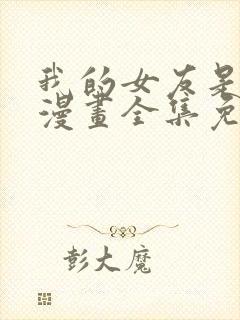 我的女友是
漫畫全集免
彭大魔